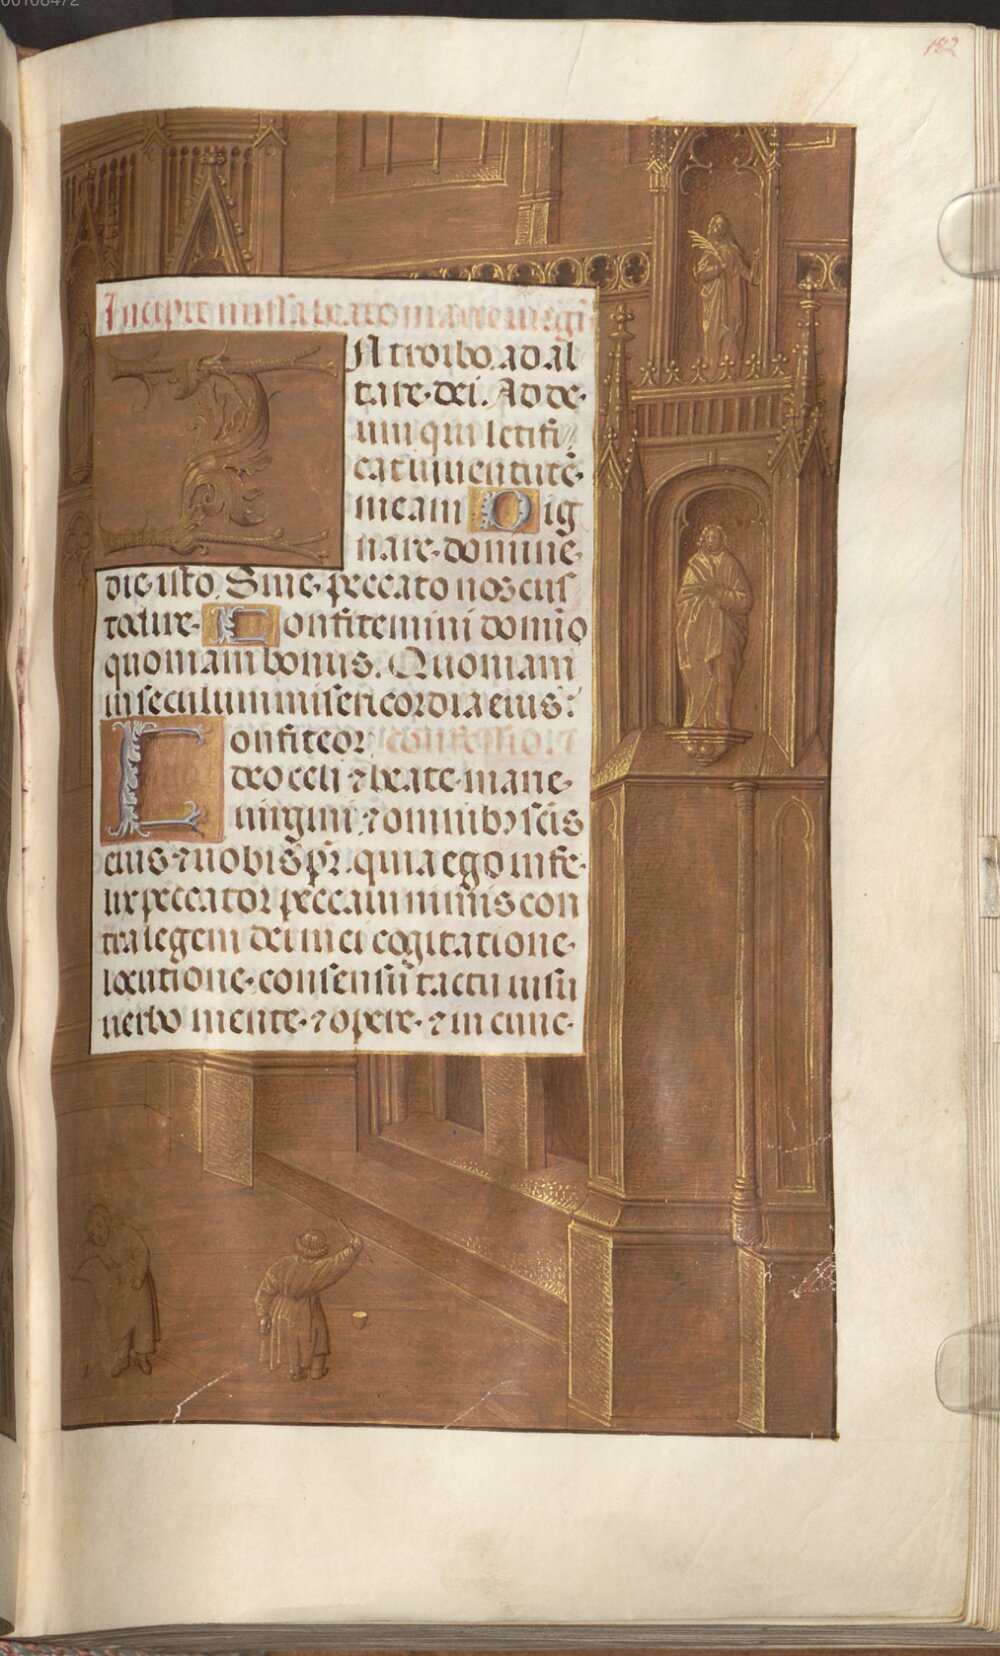 00108472
182
Incipit missa beate marie virgi
INtroibo. ad al
tare. dei. Ad de.
um qui letifi
cat iuuentutē.
meam Dig
nare. domine.
die. isto. Sine. peccato nos cus
todire. Confitemini domīo
quoniam bonus. Quoniam
in seculum misericordia eius:
Confiteor confessio
deo celi ⁊ beate. marie.
uirgini. ⁊ omnibꝫ scīs
eius. ⁊ uobis pr̄. quia ego infe.
lix peccator peccaui nimis con
tra legem dei mei cogitatione.
locutione. consensu tactu uisu
uerbo mente. ⁊ opere. ⁊ in cunc.